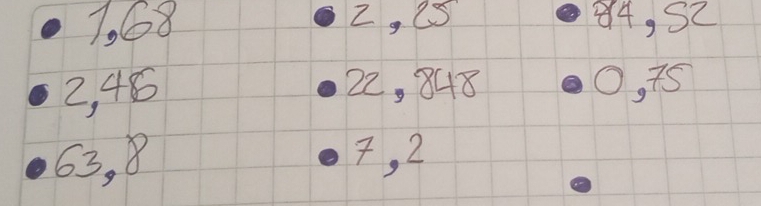 • 1,68 • 2,25 • 84,52
• 2,46 • 22,848 • 0,75
• 63,8 • 7,2 •